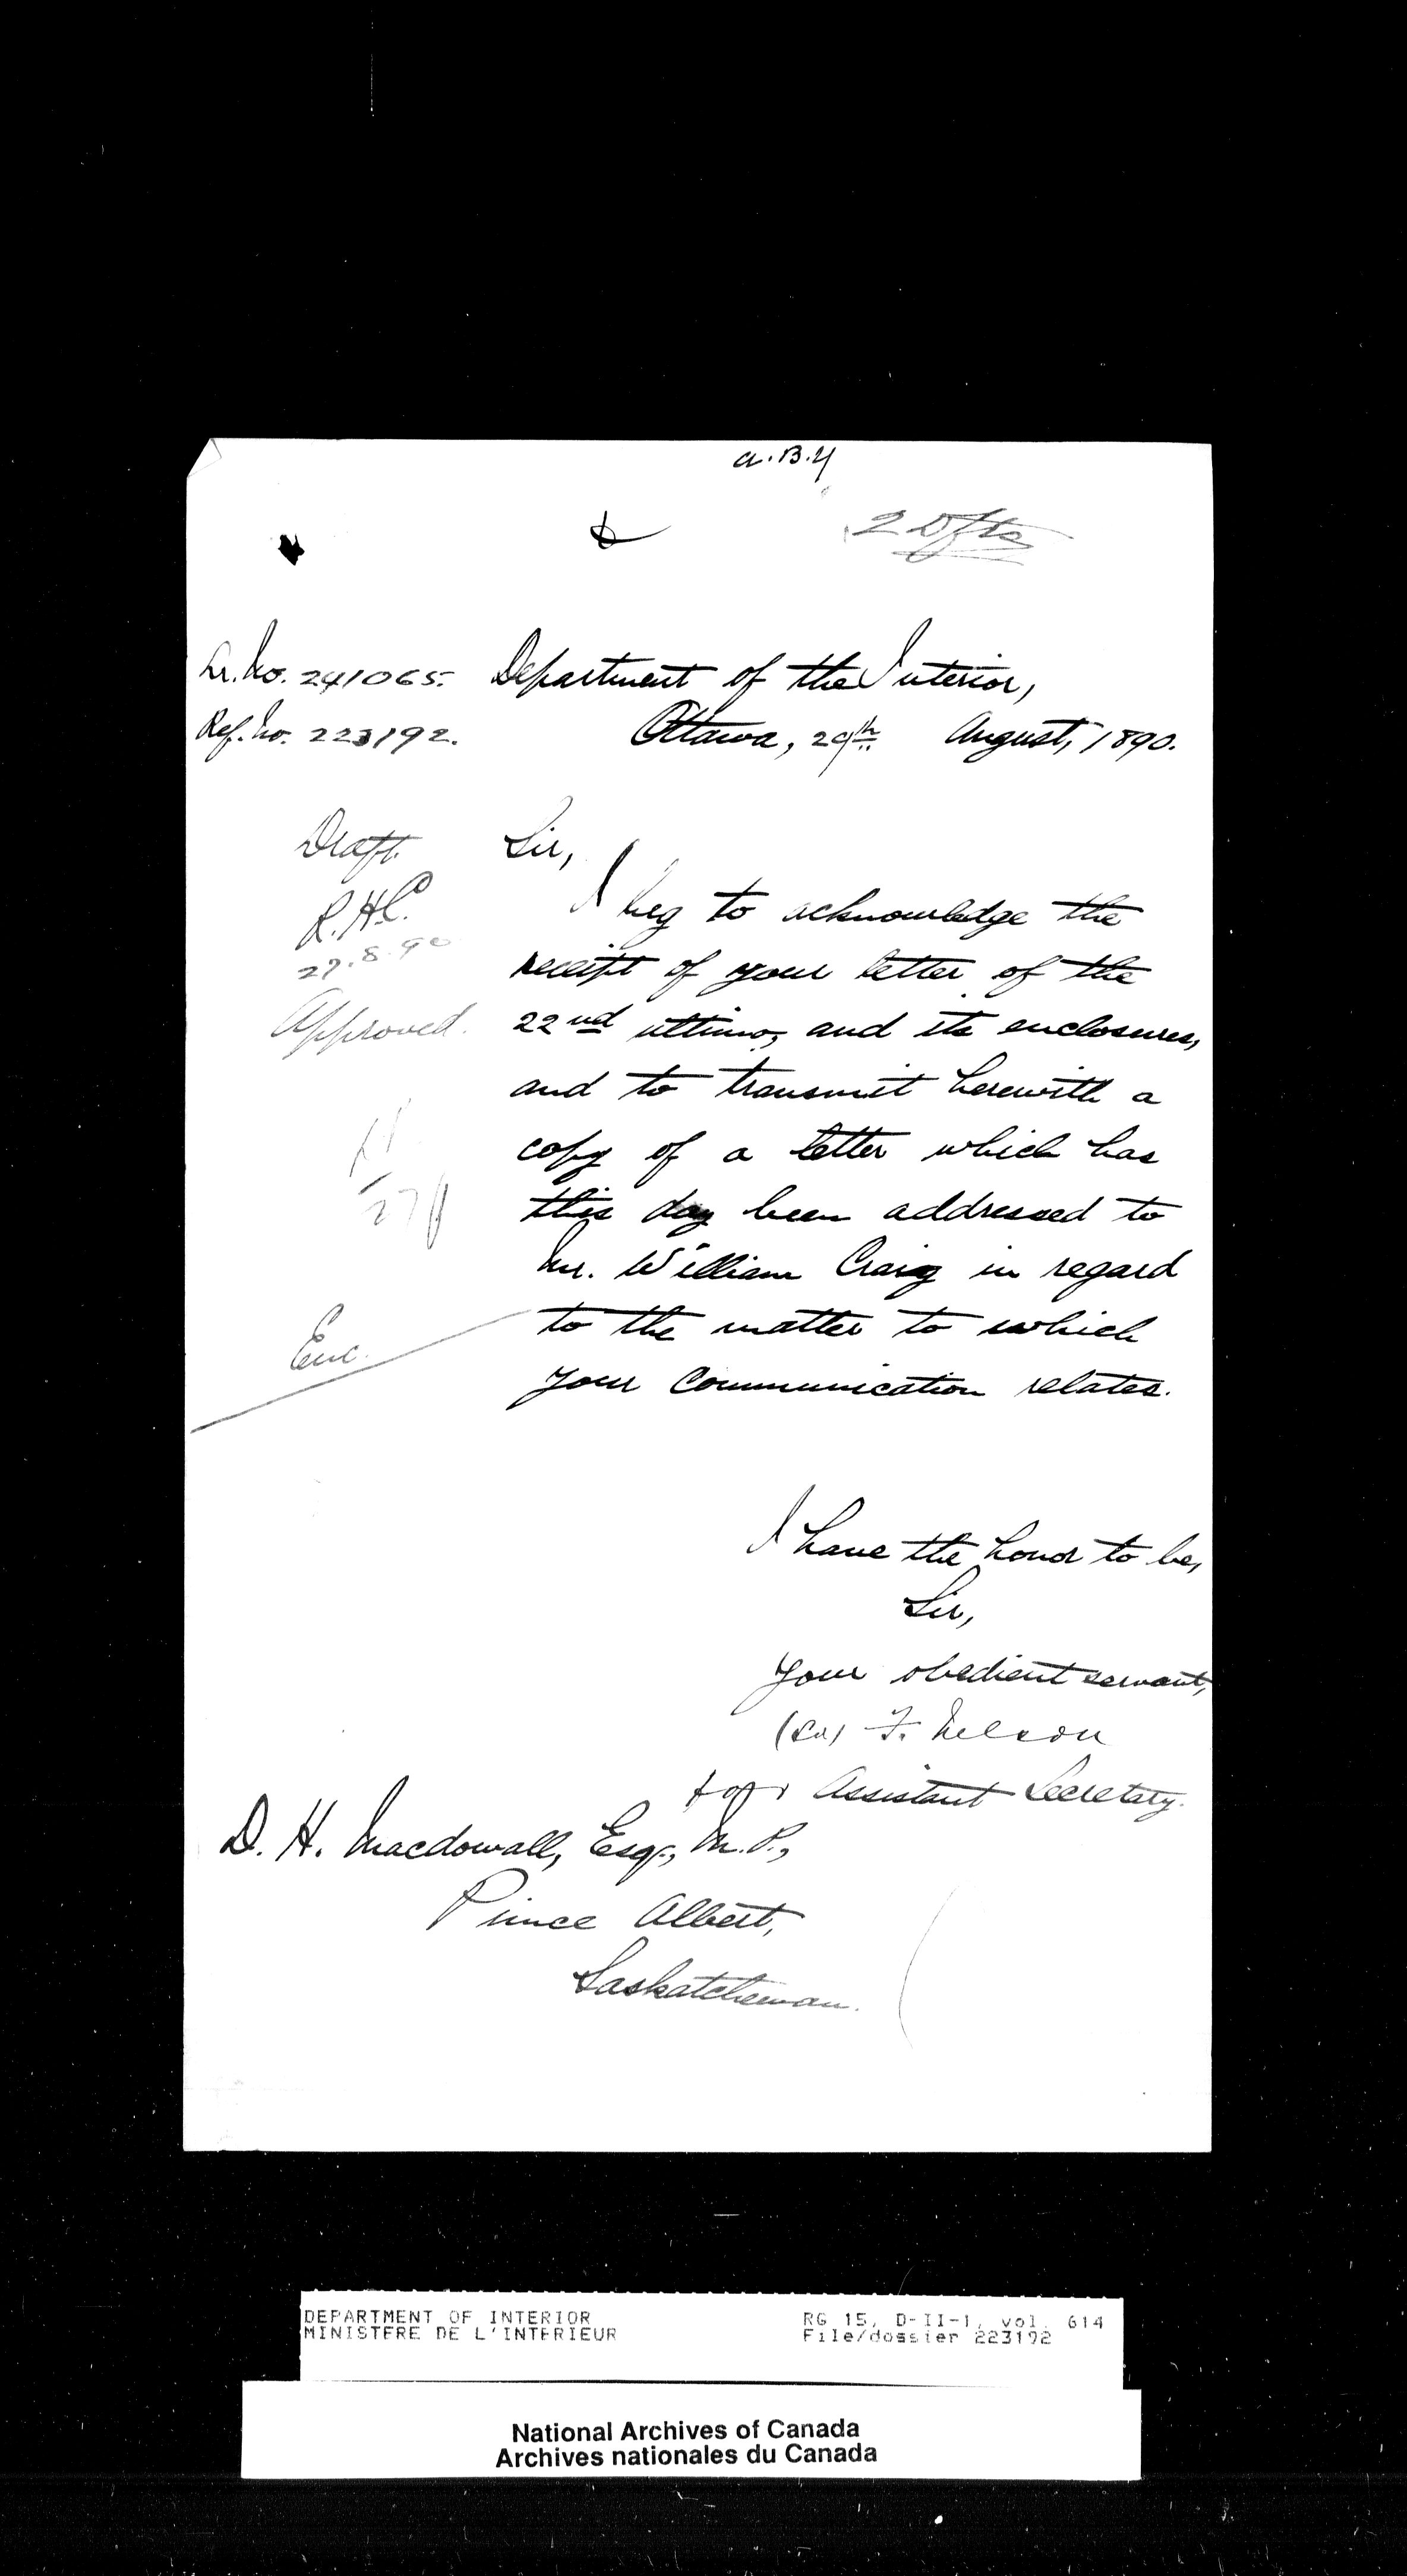 a.B.Y
2 Dfts
Lr. No. 241065. Department of the Interior,
Ref. No. 223192. Ottawa, 29th August, 1890.
Draft. Sir,
R.H.C. I beg to acknowledge the
27.8.90 receipt of your letter of the
Approved. 22nd ultimo, and its enclosures,
and to transmit herewith a
copy of a letter which has
this day been addressed to
27/8
Mr. William Craig in regard
Enc. to the matter to which
your communication relates.
I have the honor to be,
Sir,
Your obedient servant,
(Sd) F. Nelson
for Assistant Secretary.
D. H. Macdowall, Esq., M.P.,
Prince Albert,
Saskatchewan.
DEPARTMENT OF INTERIOR RG 15, D-II-1, vol. 614
MINISTERE DE L'INTERIEUR File/dossier 223192
National Archives of Canada
Archives nationales du Canada